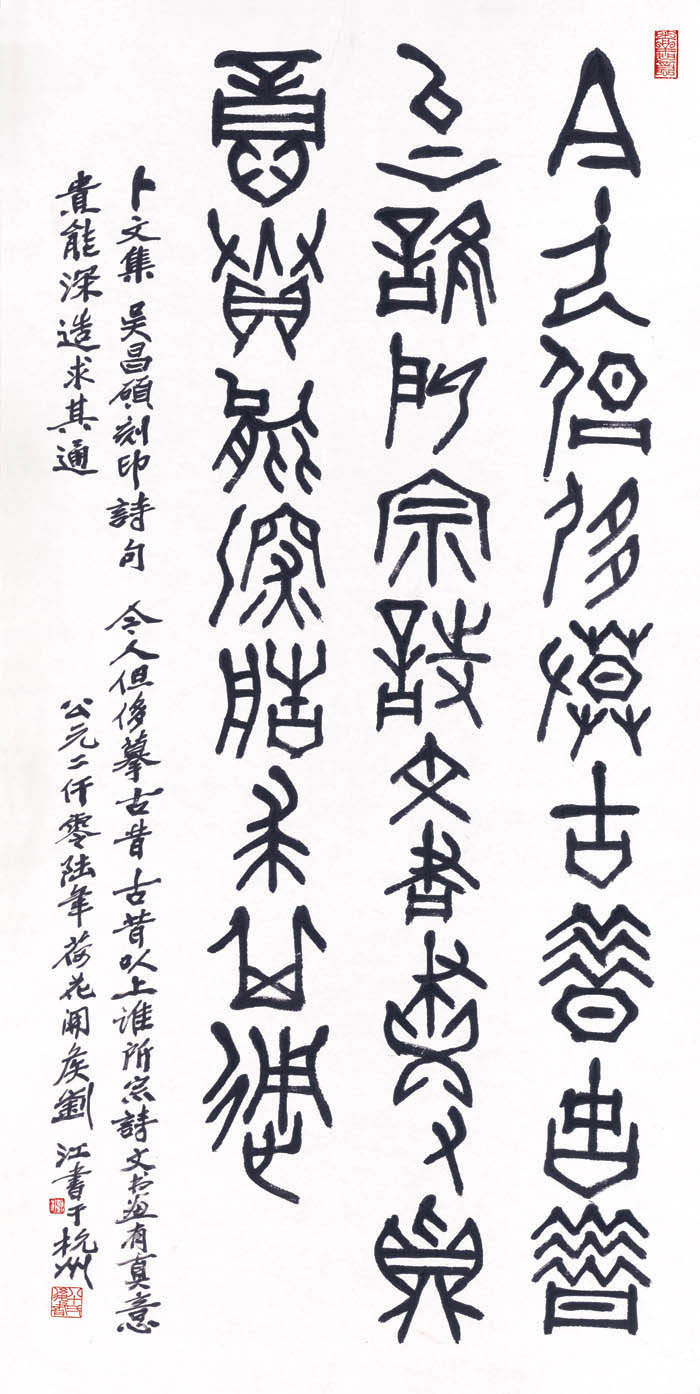 今人但侈摹古昔古昔
以上誰所宗詩文書畫有真
意貴能深造求其通
卜文集 吴昌碩刻印詩句 今人但侈摹古昔 古昔以上谁所宗 詩文书画有真意
貴能深造求其通 公元二仟零陆年荷花開矦劉江書于杭州